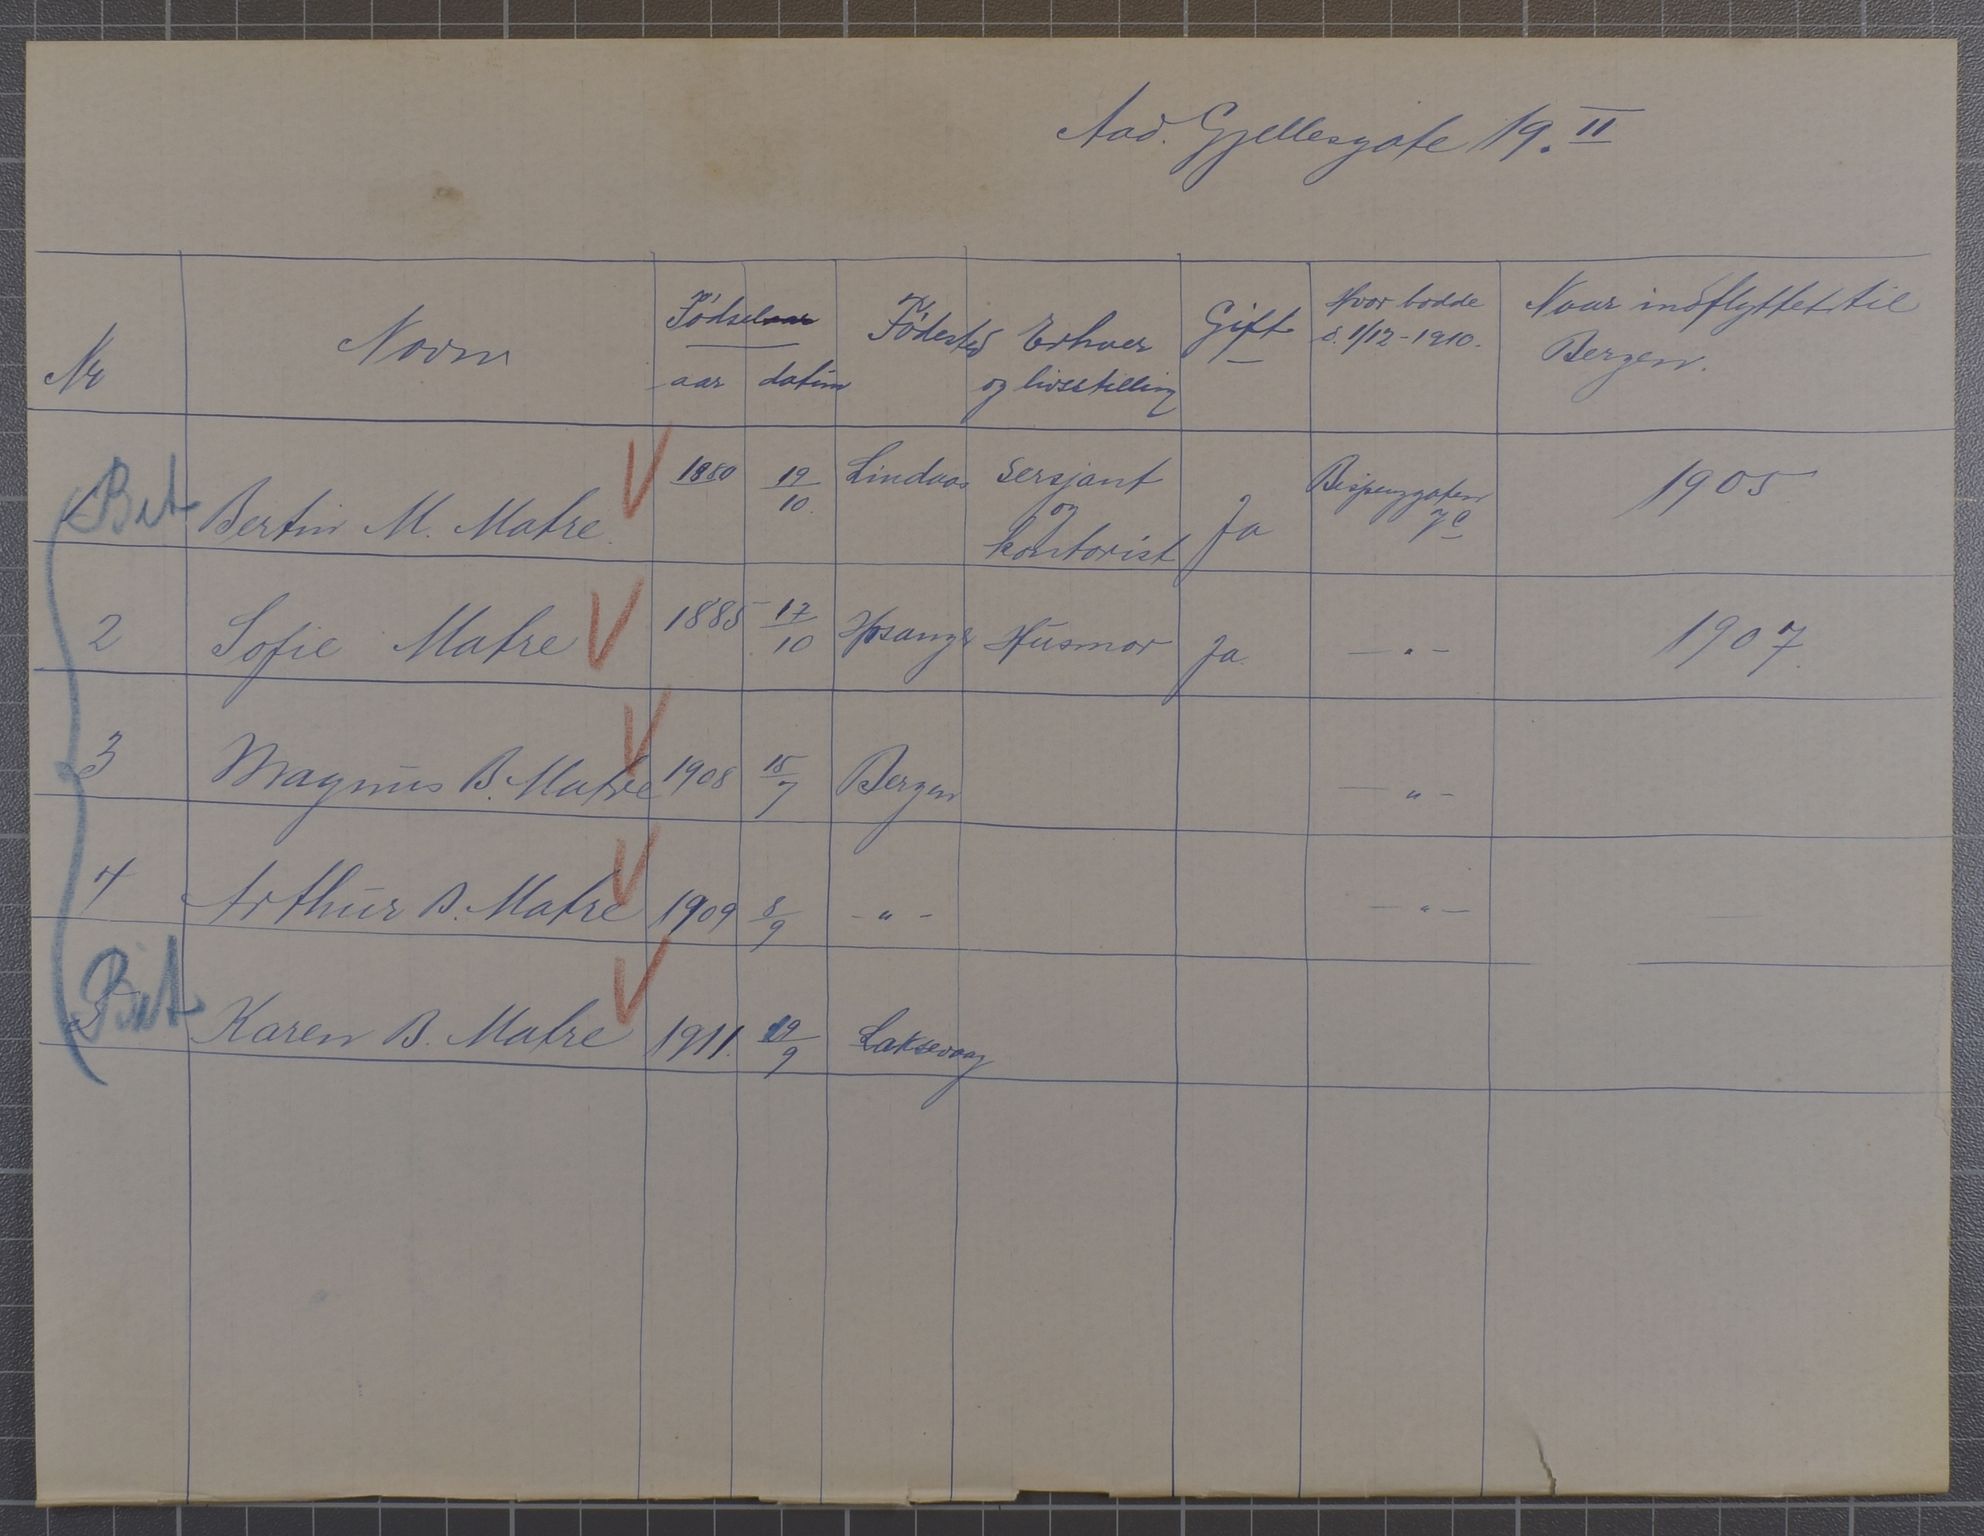 Aad. Gjellesgate 19. II
Nr Navn Fødsel aar datum Fødested Erhver og livsstilling Gift Hvor bodde d. 1/12-1910. Naar indflyttet til Bergen.
1 Bertin M. Matre 1880 19/10 Lindaas Sersjant og kontorist Ja Bispenggaten 7c 1905
2 Sofie Matre 1885 17/10 Hosanger Husmor Ja —"— 1907
3 Magnus B. Matre 1908 15/7 Bergen —"—
4 Arthur B. Matre 1909 8/9 —"— —"—
5 Karen B. Matre 1911 19/9 Laksevaag